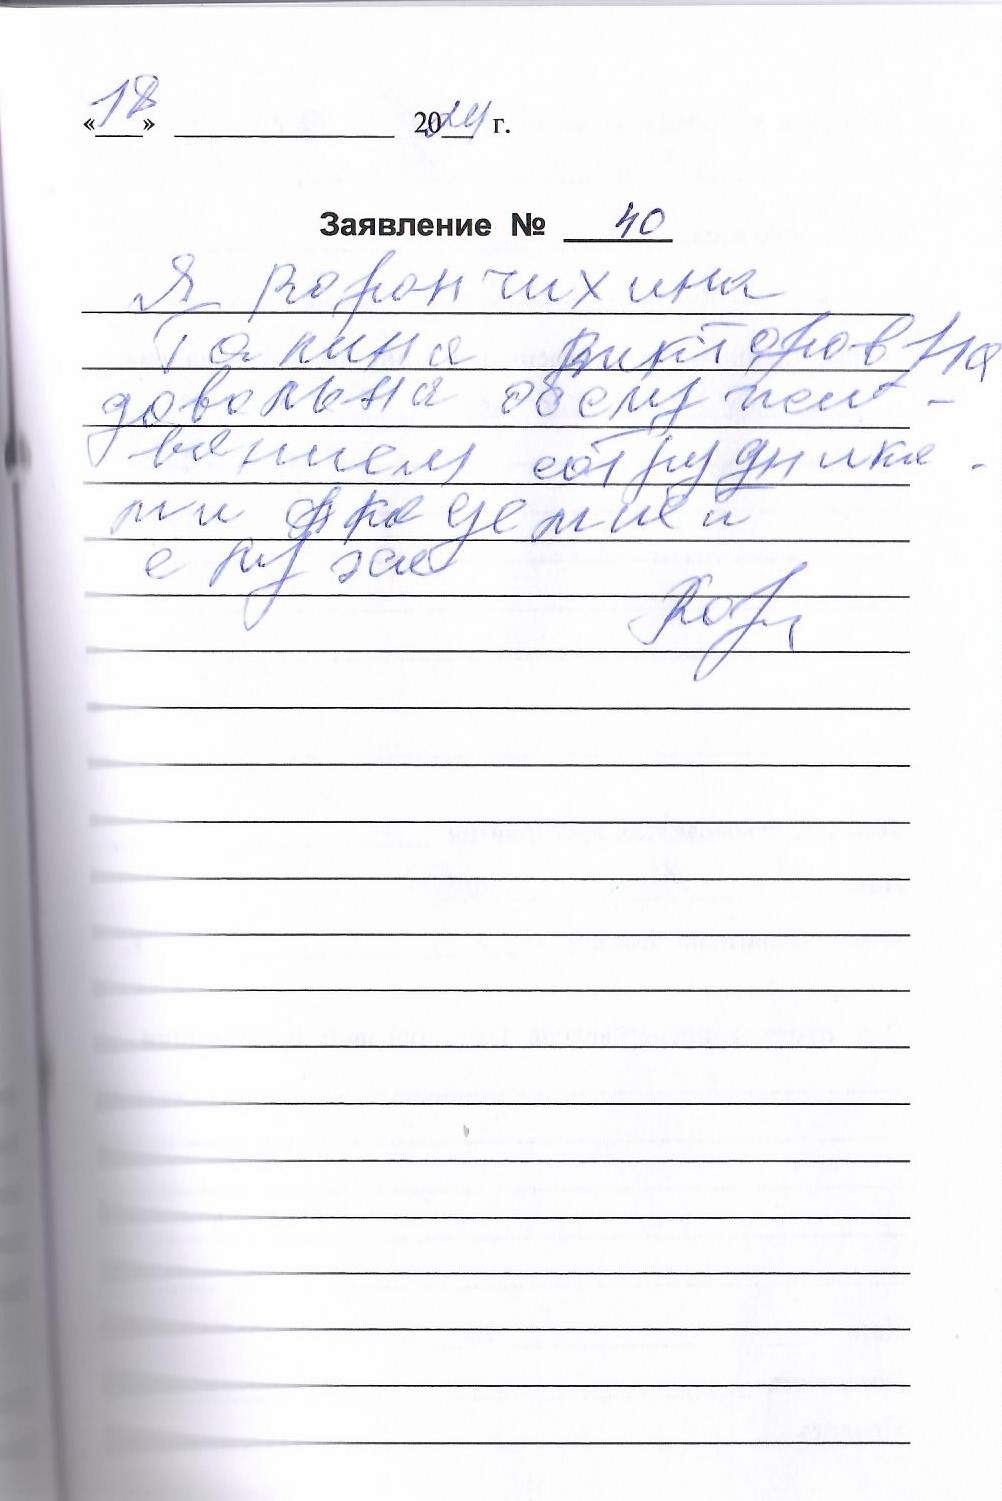 «18» ____________ 2024 г.
Заявление № 40
Я Ворончихина
Галина Викторовна
довольна обслужи-
ванием сотрудника-
ми Академией
слуха